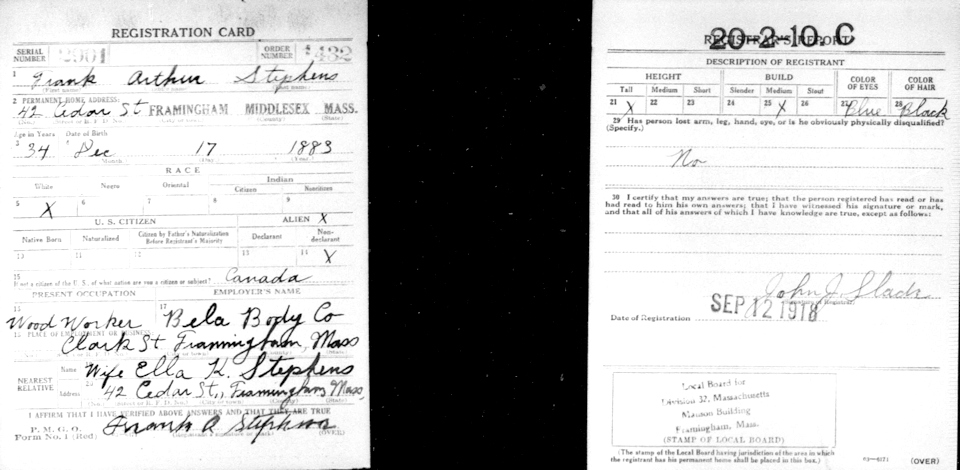 REGISTRATION CARD
SERIAL NUMBER 2901 ORDER NUMBER 432
1 Frank Arthur Stephens
2 PERMANENT HOME ADDRESS:
42 Cedar St FRAMINGHAM MIDDLESEX MASS.
Age in Years Date of Birth
3 34 4 Dec 17 1883
RACE
White Negro Oriental Indian
Citizen Noncitizen
5 X 6 7 8 9
U. S. CITIZEN ALIEN X
Native Born Naturalized Citizen by Father's Naturalization Before Registrant's Majority Declarant Non-declarant
10 11 12 13 14 X
15 If not a citizen of the U. S. of what nation are you a citizen or subject? Canada
PRESENT OCCUPATION EMPLOYER'S NAME
16 Wood Worker 17 Bela Body Co
18 PLACE OF EMPLOYMENT OR BUSINESS:
Clark St Framingham, Mass
NEAREST RELATIVE
Name Wife Ella K. Stephens
Address 42 Cedar St., Framingham, Mass,
I AFFIRM THAT I HAVE VERIFIED ABOVE ANSWERS AND THAT THEY ARE TRUE
P. M. G. O.
Form No. 1 (Red) Frank A Stephens (OVER)
20-2-10 C
REGISTRAR'S REPORT
DESCRIPTION OF REGISTRANT
HEIGHT BUILD COLOR OF EYES COLOR OF HAIR
Tall Medium Short Slender Medium Stout
21 X 22 23 24 25 X 26 27 Blue 28 Black
29 Has person lost arm, leg, hand, eye, or is he obviously physically disqualified?
(Specify.)
No
30 I certify that my answers are true; that the person registered has read or has
had read to him his own answers; that I have witnessed his signature or mark,
and that all of his answers of which I have knowledge are true, except as follows:
John J. Slack
(Signature of Registrar)
Date of Registration SEP 12 1918
Local Board for
Division 37, Massachusetts
Manson Building
Framingham, Mass.
(STAMP OF LOCAL BOARD)
(The stamp of the Local Board having jurisdiction of the area in which
the registrant has his permanent home shall be placed in this box.)
(OVER)